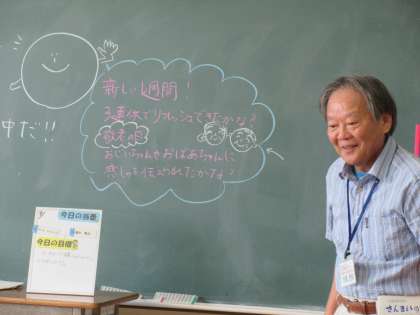 新しい週間!
3連休でリフレッシュできたかな?
敬老の日
おじいちゃんやおばあちゃんに
感しゃを伝えられたかな?
中だ!!
今日の当番
今日の目標
さんまい